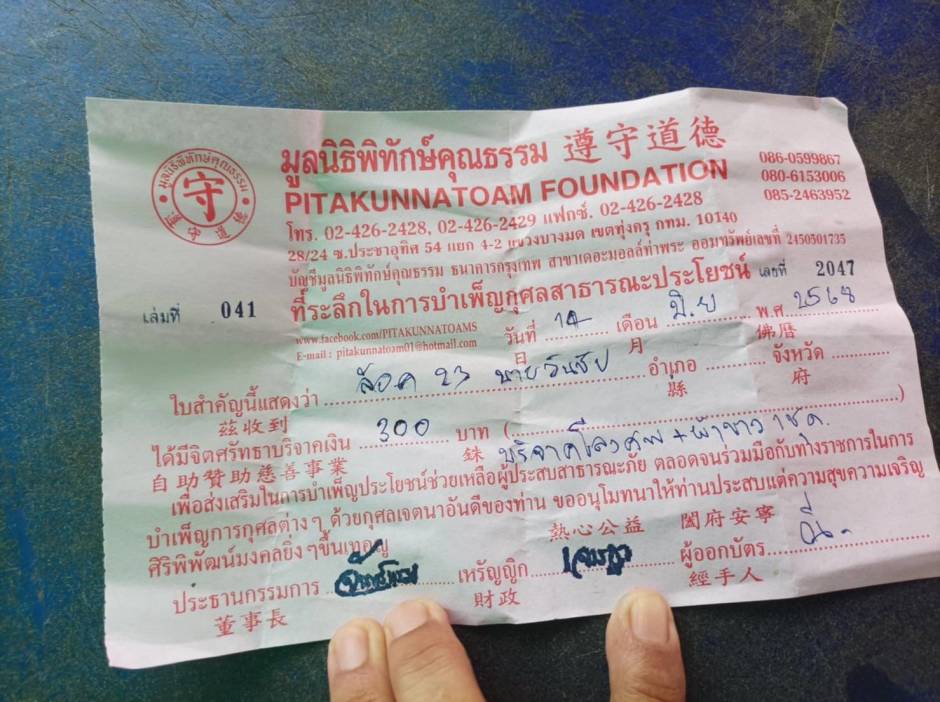 มูลนิธิพิทักษ์คุณธรรม 遵守道德
PITAKUNNATOAM FOUNDATION
086-0599867
080-6153006
085-2463952
มูลนิธิพิทักษ์คุณธรรม
守
โทร. 02-426-2428, 02-426-2429 แฟกซ์. 02-426-2428
28/24 ซ.ประชาอุทิศ 54 แยก 4-2 แขวงบางมด เขตทุ่งครุ กทม. 10140
บัญชีมูลนิธิพิทักษ์คุณธรรม ธนาคารกรุงเทพ สาขาเดอะมอลล์ท่าพระ ออมทรัพย์เลขที่ 2450501735
เล่มที่ 041 ที่ระลึกในการบำเพ็ญกุศลสาธารณะประโยชน์ เลขที่ 2047
www.facebook.com/PITAKUNNATOAMS
E-mail : pitakunnatoam01@hotmail.com
วันที่ 14 เดือน มิ.ย พ.ศ 2568
日 月 佛曆
ใบสำคัญนี้แสดงว่า ล๊อค 23 นายวันชัย อำเภอ จังหวัด
茲收到 縣 府
ได้มีจิตศรัทธาบริจาคเงิน 300 บาท (บริจาคโลงศพ + ผ้าขาว 1 ชุด)
自助贊助慈善事業 銖
เพื่อส่งเสริมในการบำเพ็ญประโยชน์ช่วยเหลือผู้ประสบสาธารณะภัย ตลอดจนร่วมมือกับทางราชการในการ
บำเพ็ญการกุศลต่างๆ ด้วยกุศลเจตนาอันดีของท่าน ขออนุโมทนาให้ท่านประสบแต่ความสุขความเจริญ
ศิริพิพัฒน์มงคลยิ่งๆขึ้นเทอญ 熱心公益 闔府安寧
ประธานกรรมการ เหรัญญิก ผู้ออกบัตร
董事長 財政 經手人